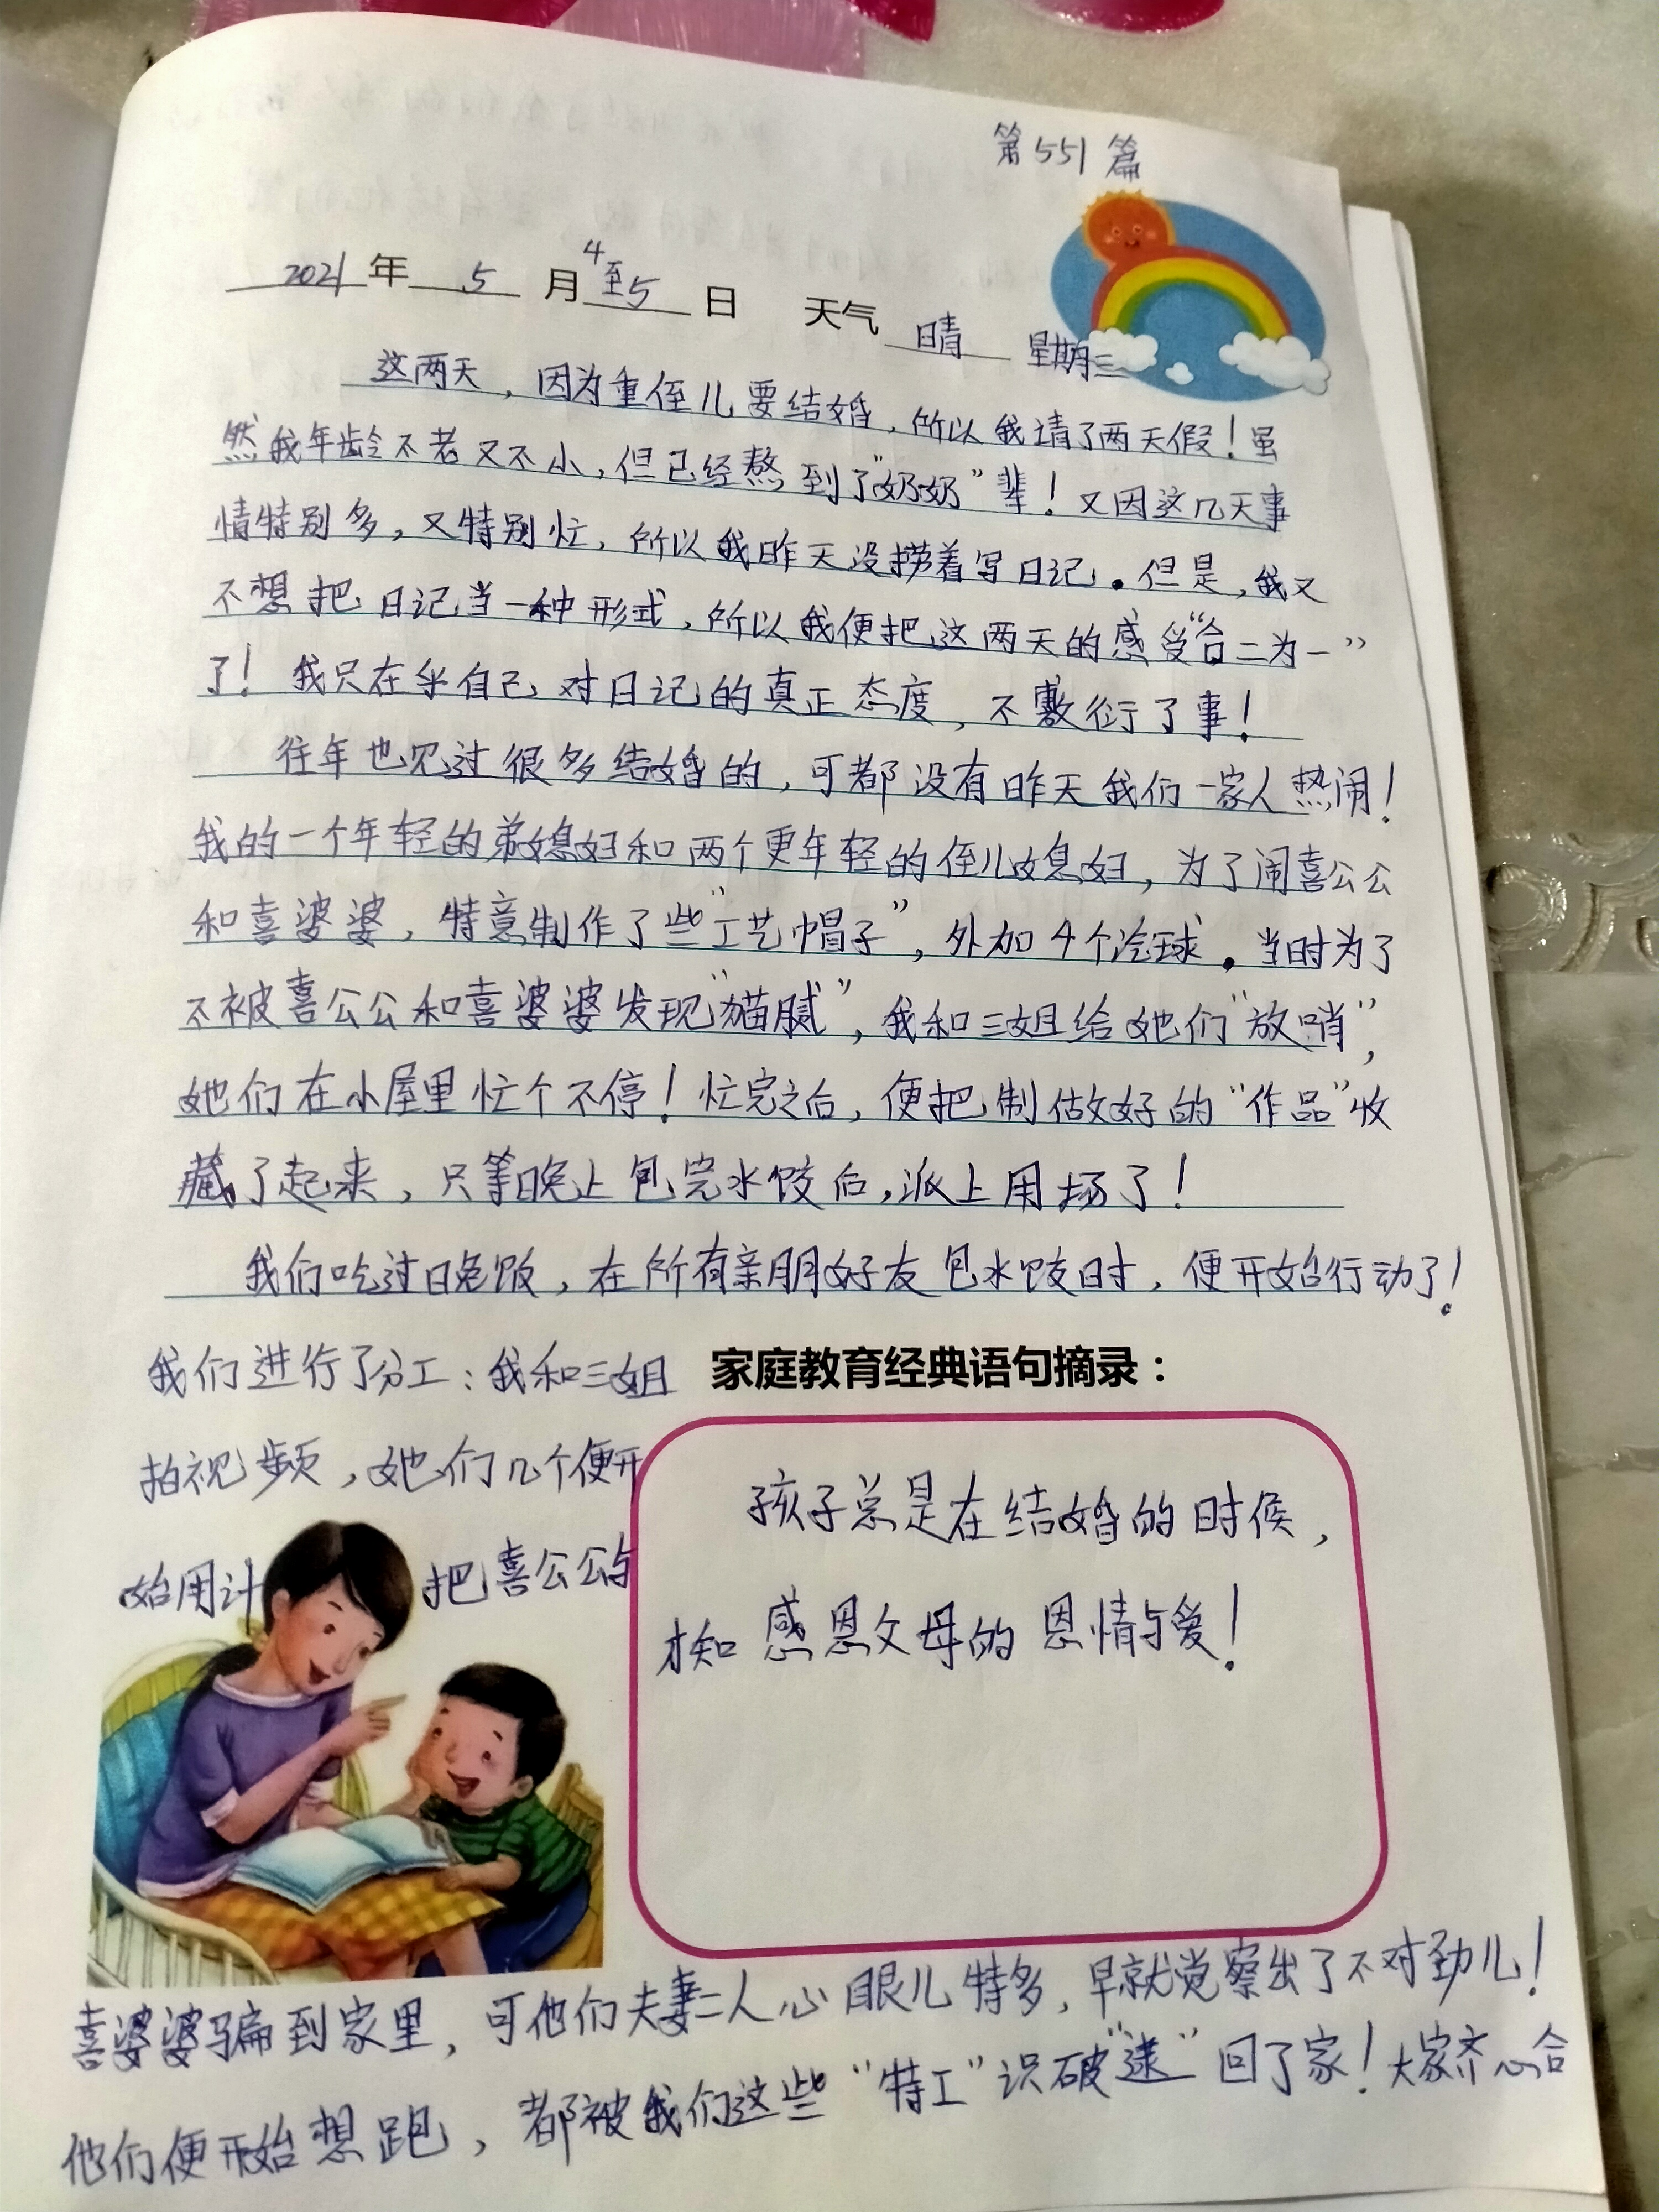 第551篇
2021年 5 月4至5日 天气 晴 星期三
这两天，因为重侄儿要结婚，所以我请了两天假！虽
然我年龄不老又不小，但已经熬到了“奶奶”辈！又因这几天事
情特别多，又特别忙，所以我昨天没捞着写日记。但是，我又
不想把日记当一种形式，所以我便把这两天的感受“合二为一”
了！我只在乎自己对日记的真正态度，不敷衍了事！
往年也见过很多结婚的，可都没有昨天我们一家人热闹！
我的一个年轻的弟媳妇和两个更年轻的侄儿媳妇，为了闹喜公公
和喜婆婆，特意制作了些“工艺帽子”，外加4个泠球。当时为了
不被喜公公和喜婆婆发现“猫腻”，我和三姐给她们“放哨”，
她们在小屋里忙个不停！忙完之后，便把制做好的“作品”收
藏了起来，只等晚上包完水饺后，派上用场了！
我们吃过晚饭，在所有亲朋好友包水饺时，便开始行动了！
我们进行了分工：我和三姐
拍视频，她们几个便开
始用计把喜公公与
家庭教育经典语句摘录：
孩子总是在结婚的时候，
才知感恩父母的恩情与爱！
喜婆婆骗到家里，可他们夫妻二人心眼儿特多，早就觉察出了不对劲儿！
他们便开始想跑，都被我们这些“特工”识破“逮”回了家！大家齐心合